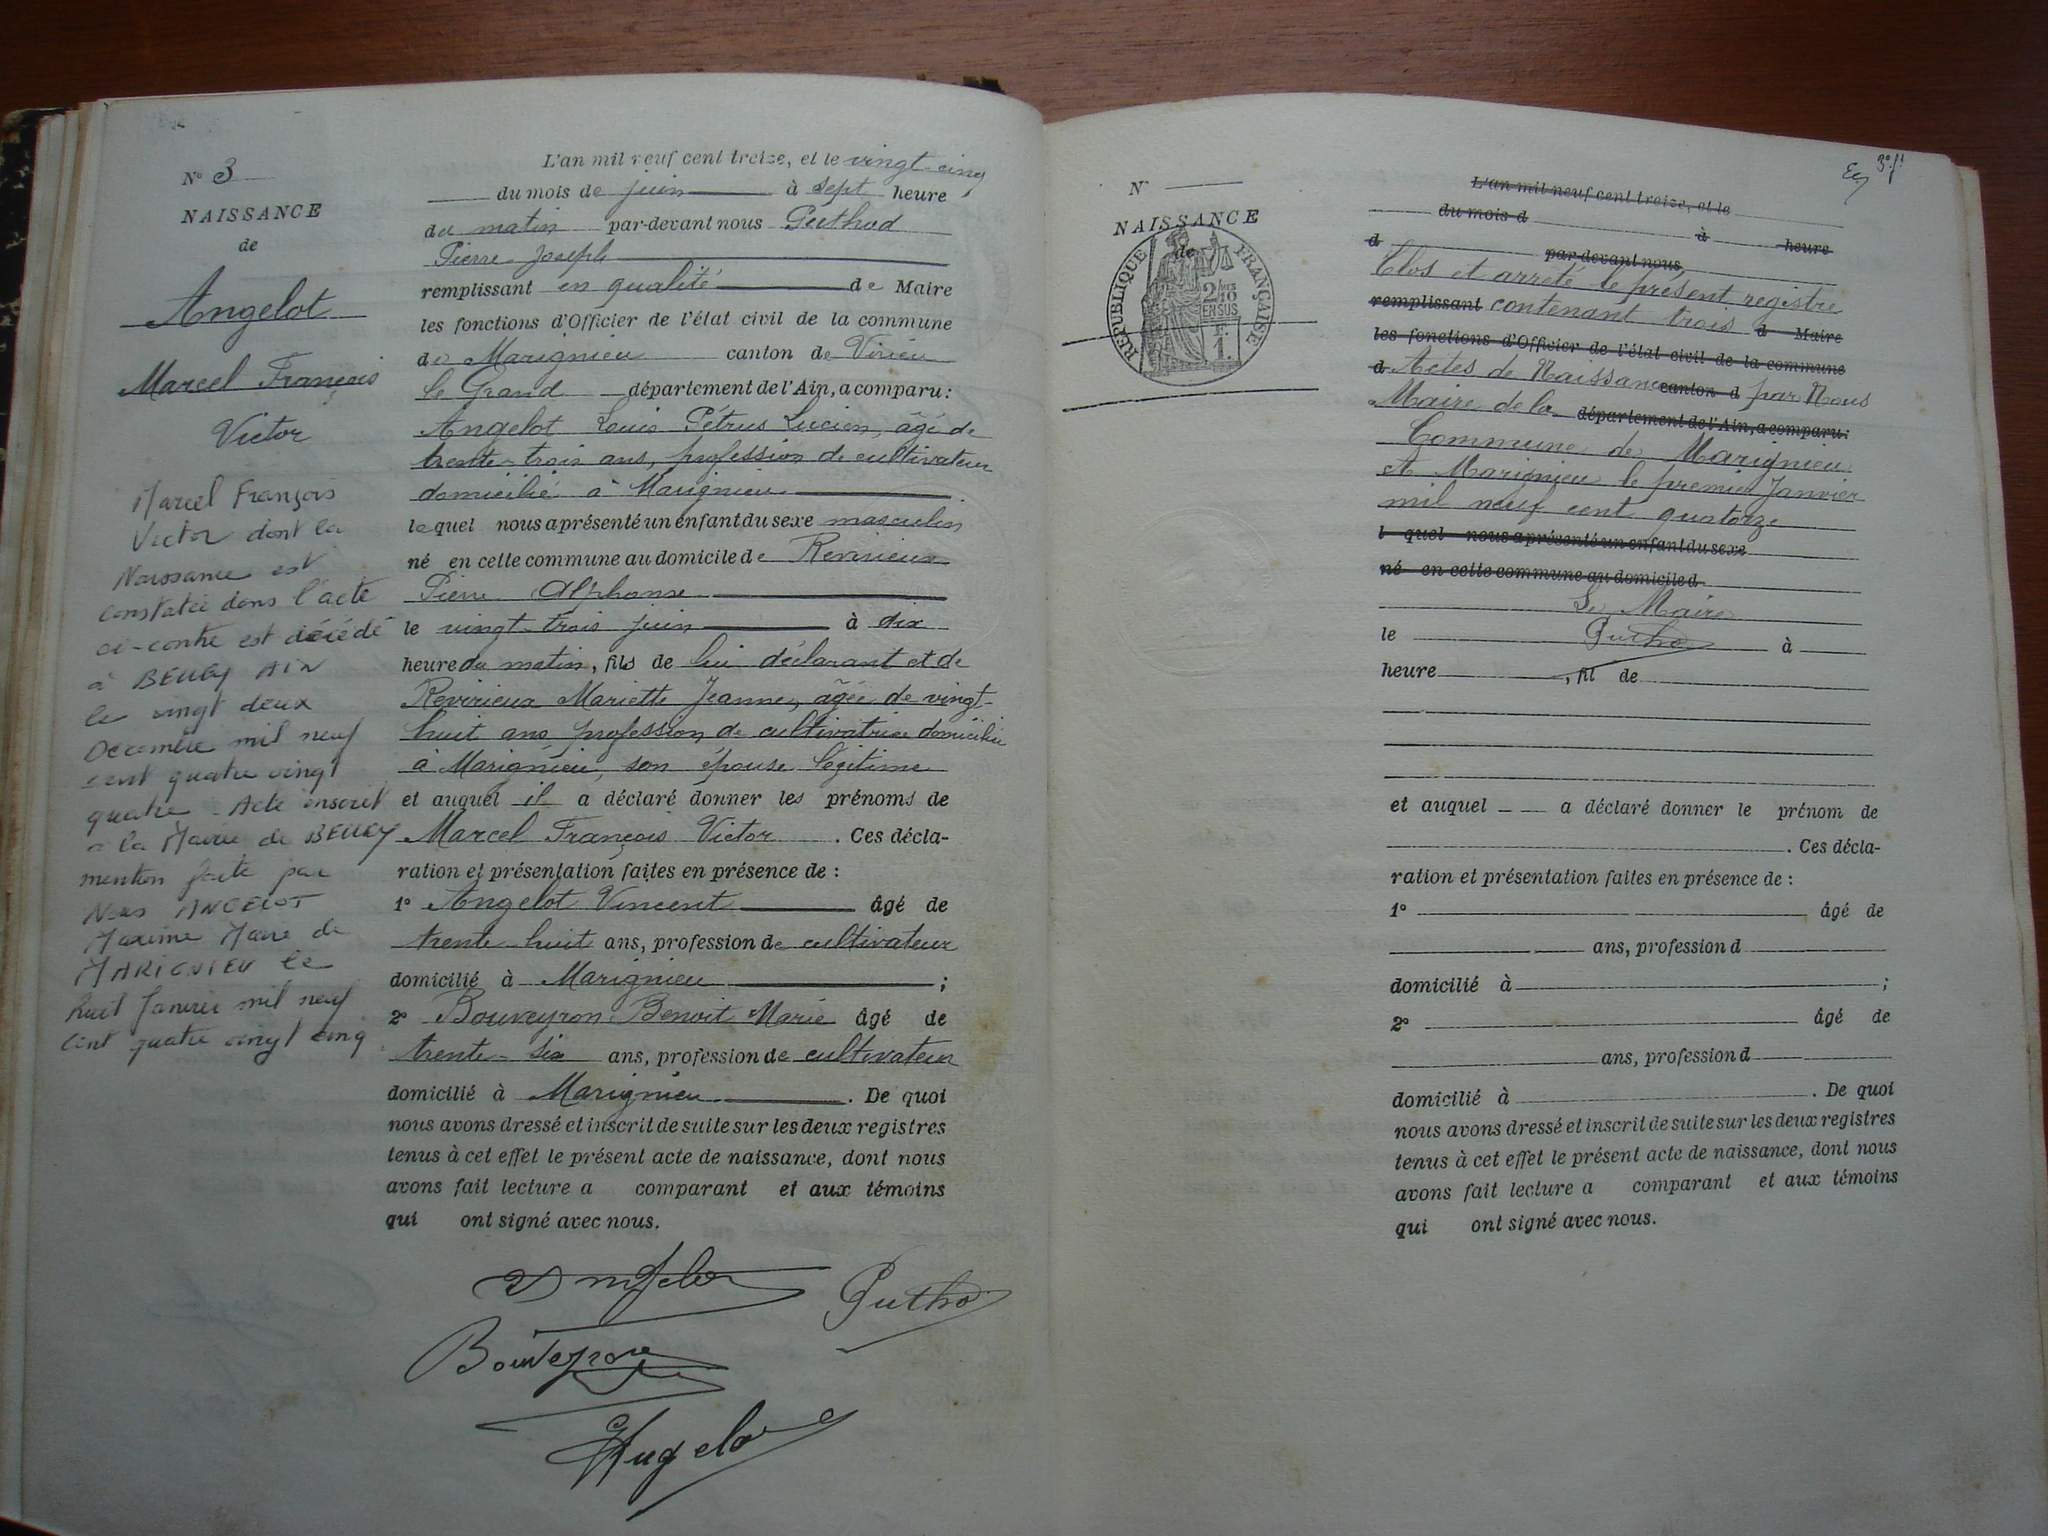 N° 3
NAISSANCE
de
Angelot
Marcel François
Victor
Marcel François
Victor dont la
Naissance est
constatée dans l'acte
ci-contre est décédé
à BELLEY AIN
le vingt deux
Décembre mil neuf
cent quatre vingt
quatre. Acte inscrit
a la Mairie de BELLEY
mention faite par
Nous ANGELOT
Maxime Maire de
MARIGNIEU le
huit Janvier mil neuf
cent quatre vingt cinq
L'an mil neuf cent treize, et le vingt-cinq
du mois de juin à sept heure
du matin par-devant nous Puthod
Pierre Joseph
remplissant en qualité de Maire
les fonctions d'Officier de l'état civil de la commune
de Marignieu canton de Virieu
le Grand département de l'Ain, a comparu :
Angelot Louis Pétrus Lucien, âgé de
trente-trois ans, profession de cultivateur
domicilié à Marignieu
lequel nous a présenté un enfant du sexe masculin
né en cette commune au domicile de Revirieux
Pierre Alphonse
le vingt-trois juin à dix
heure du matin, fils de lui déclarant et de
Revirieux Mariette Jeanne, âgée de vingt-
huit ans profession de cultivatrice domiciliée
à Marignieu, son épouse légitime
et auquel il a déclaré donner les prénoms de
Marcel François Victor . Ces décla-
ration et présentation faites en présence de :
1° Angelot Vincent âgé de
trente huit ans, profession de cultivateur
domicilié à Marignieu ;
2° Bouveyron Benoit Marie âgé de
trente-six ans, profession de cultivateur
domicilié à Marignieu . De quoi
nous avons dressé et inscrit de suite sur les deux registres
tenus à cet effet le présent acte de naissance, dont nous
avons fait lecture a comparant et aux témoins
qui ont signé avec nous.
Angelot
Putho
Bouveyron
Angelot
3e f.
N°
NAISSANCE
de
RÉPUBLIQUE FRANÇAISE
2/10
EN SUS
F.
1.
L'an mil neuf cent treize, et le
du mois d à heure
d par-devant nous
Clos et arrêté le présent registre
remplissant contenant trois d Maire
les fonctions d'Officier de l'état civil de la commune
d Actes de Naissance canton d par Nous
Maire de la département de l'Ain, a comparu :
Commune de Marignieu
A Marignieu le premier Janvier
mil neuf cent quatorze
l quel nous a présenté un enfant du sexe
né en cette commune au domicile d
Le Maire
le Putho à
heure , fil de
et auquel a déclaré donner le prénom de
. Ces décla-
ration et présentation faites en présence de :
1° âgé de
ans, profession d
domicilié à ;
2° âgé de
ans, profession d
domicilié à . De quoi
nous avons dressé et inscrit de suite sur les deux registres
tenus à cet effet le présent acte de naissance, dont nous
avons fait lecture a comparant et aux témoins
qui ont signé avec nous.